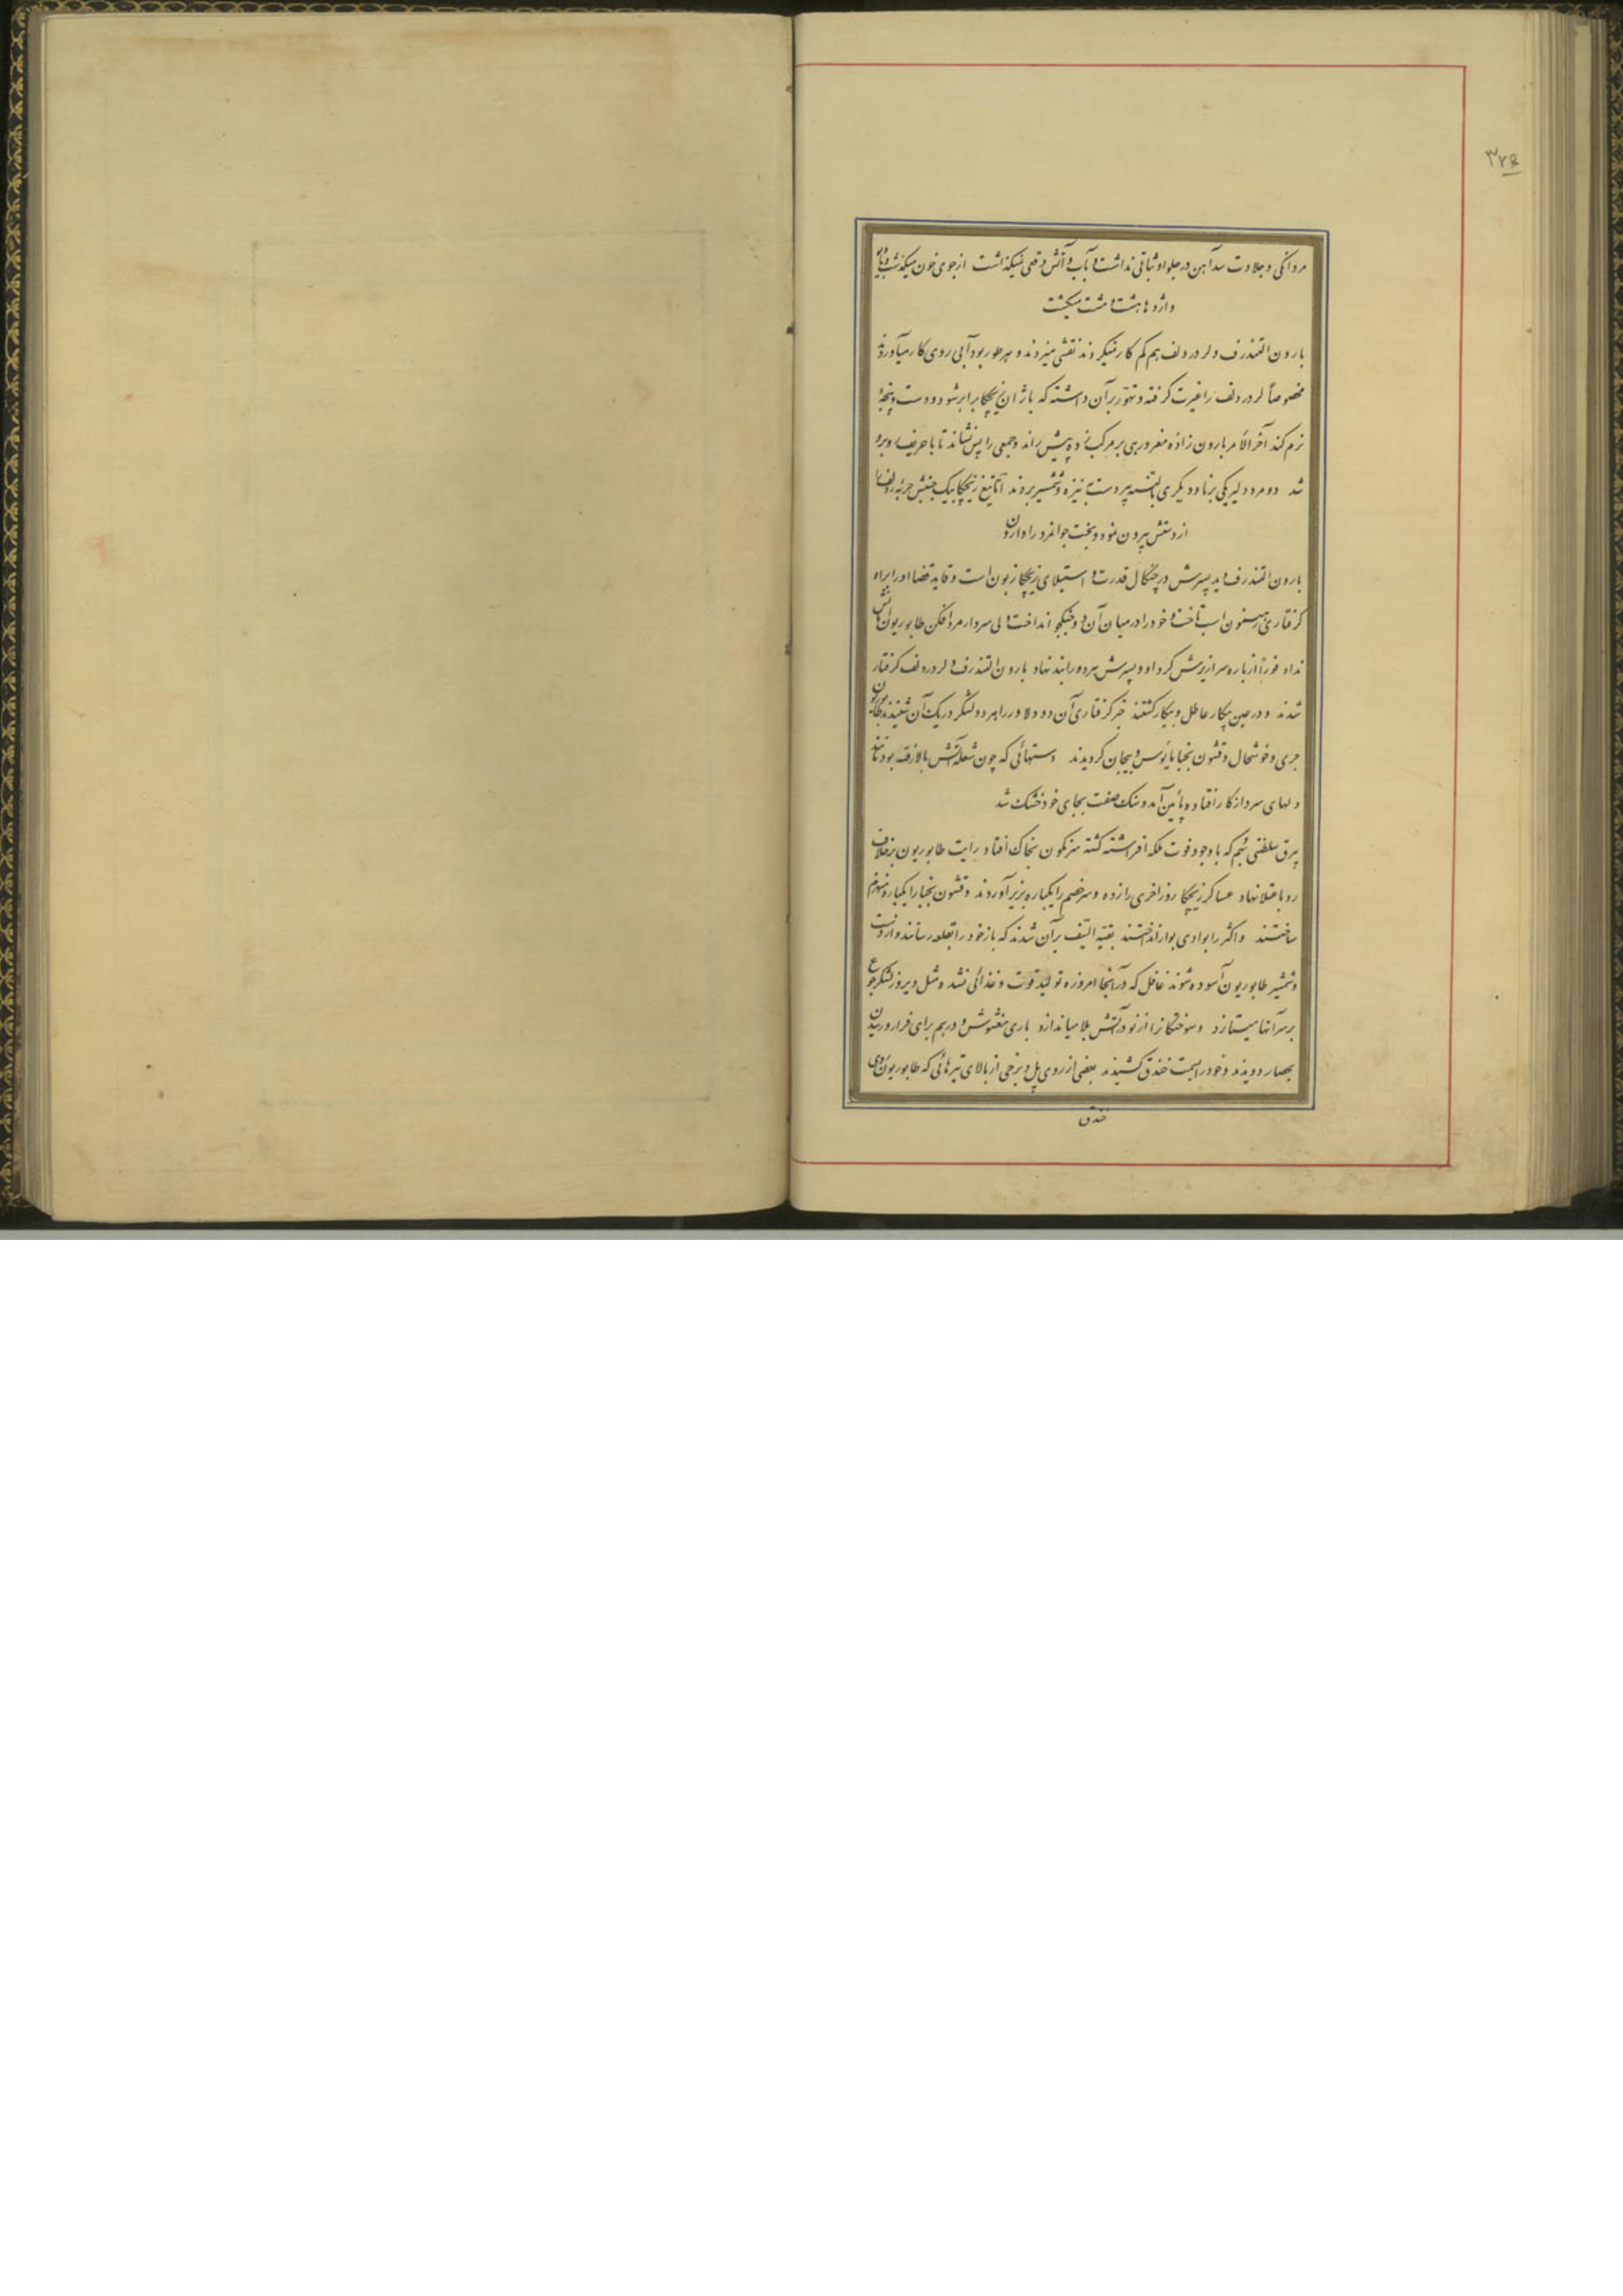 ۳۷۶
مردانگی و جلادت سد آهن در جلو او ثباتی نداشت و بآب و آتش وقعی نمیگذاشت از جوی خون میگذشت و با دیو
و اژدها بمشت و مشت میکشت
بارون التندرف و لردردلف هم کم کار نمیکردند نقشی میزدند و بهرطور بود آبی روی کار میآوردند
مخصوصاً لردردلف را غیرت گرفته و تهوّر بر آن داشته که با ژان زیچکا برابر شود و دست و پنجهٔ
نرم کند آخرالامر بارون زاده مغرور بی بر مرکب زده پیش راند و جمعی را پس نشاند تا با حریف روبرو
شد دو مرد دلیر یکی برنا و دیگری بالنسبه پیر دست به نیزه و شمشیر بردند امّا تیغ زیچکا بیک جنبش حربه ردلف را
از دستش بیرون نمود و بخت جوانمرد را وارون
بارون التندرف دید پسرش در چنگال قدرت و استیلای زیچکا زبون است و قاید قضا او را براه
گرفتاری رهنمون اسب تاخت و خود را در میان آن دو جنگجو انداخت ولی سردار مرد افکن طابوریون امانش
نداد فوراً از باره سرازیرش کرد او و پسرش هر دو را بند نهاد بارون التندرف و لردردلف گرفتار
شدند و در عین پیکار عاطل و بیکار گشتند خبر گرفتاری آن دو دلاور را هر دو لشگر در یک آن شنیدند طابوریون
جری و خوشحال و قشون نجبا مأیوس و بیجان گردیدند دستهائی که چون شعله آتش بالا رفته بود مانند
دلهای سرد از کار افتاده پائین آمد و سنگ صفت بجای خود خشک شد
بیرق سلطنتی هم که با وجود فوت ملکه افراشته گشته سرنگون بخاک افتاد رایت طابوریون برخلاف
رو باعتلا نهاد عساکر زیچکا روز اخری را زده و سر خصم را یکباره بزیر آوردند و قشون نجبا را یکباره منهزم
ساختند و اکثر را بوادی بوار انداختند بقیّه السّیف بر آن شدند که باز خود را بقلعه رسانند و از دست
و شمشیر طابوریون آسوده شوند غافل که در آنجا امروزه تولید قوت و غذائی نشده مثل دیروز لشگر جوع
بر سر آنها میتازد و سوختگان را از نو در آتش بلا میاندازد باری مغشوش و درهم برای فرار و رسیدن
بحصار دویدند و خود را بسمت خندق کشیدند بعضی از روی پل و برخی از بالای تیرهائی که طابوریون روی
خندق